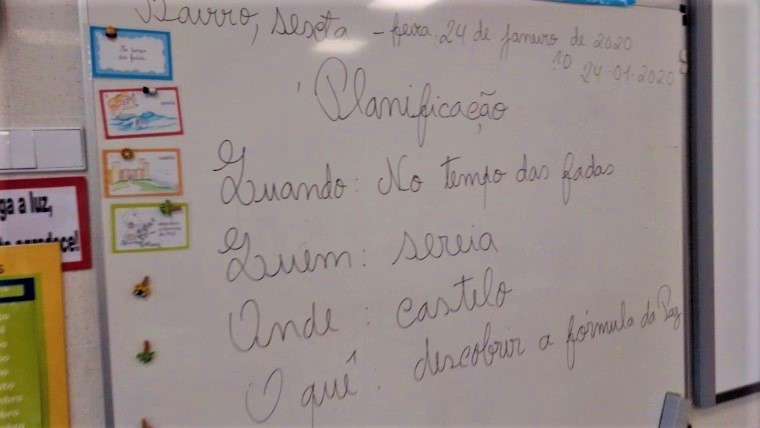 Bairro, sexta-feira, 24 de janeiro de 2020
24-01-2020
Planificação
Quando: No tempo das fadas
Quem: sereia
Onde: castelo
O quê: descobrir a fórmula da Paz
No tempo das fadas
a luz,